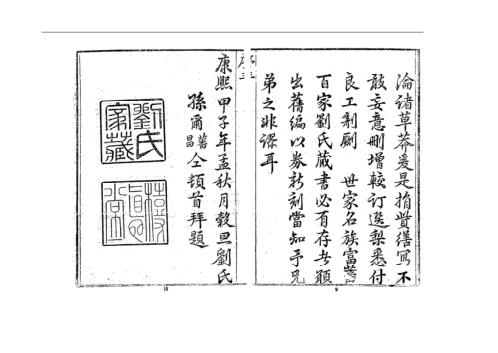 淪諸草莽爰是捐貲繕寫不
敢妄意刪增較訂選梨悉付
良工剞劂 世家名族富蓄
百家劉氏藏書必有存者願
出舊編以券新刻當知予兄
弟之非謬耳
康熙甲子年孟秋月穀旦劉氏
孫爾蕃昌仝頓首拜題
劉氏家藏
9
10